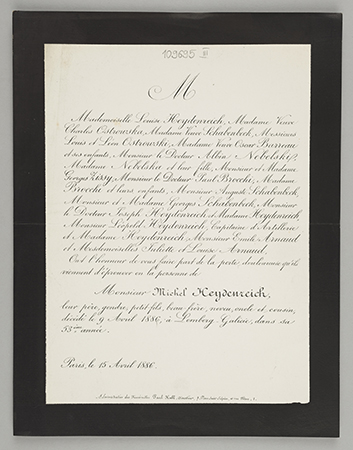 109695 III
M
Mademoiselle Louise Heydenreich, Madame Veuve
Charles Ostrowska, Madame Veuve Schabenbeck, Messieurs
Louis et Léon Ostrowski, Madame Veuve Oscar Barreau
et ses enfants, Monsieur le Docteur Albin Nebelski,
Madame Nebelska et leur fille, Monsieur et Madame
Georges Zissy, Monsieur le Docteur Paul Brocchi, Madame
Brocchi et leurs enfants, Monsieur Auguste Schabenbeck,
Monsieur et Madame Georges Schabenbeck, Monsieur
le Docteur Joseph Heydenreich et Madame Heydenreich
Monsieur Léopold Heydenreich, Capitaine d'Artillerie
et Madame Heydenreich Monsieur Emile Arnaud
et Mesdemoiselles Juliette et Louise Arnaud
Ont l'honneur de vous faire part de la perte douloureuse qu'ils
viennent d'éprouver en la personne de
Monsieur Michel Heydenreich,
leur père, gendre, petit fils, beau frère, neveu, oncle et cousin,
décédé le 9 Avril 1886, à Lemberg Galicie, dans sa
53ème année.
Paris, le 15 Avril 1886.